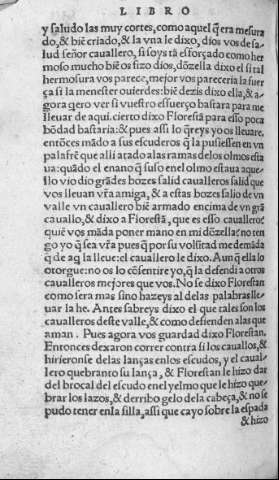 LIBRO
y saludo las muy cortes, como aquel q̃ era mesura
do, & biẽ criado, & la vna le dixo, dios vos de sa-
lud señor cauallero, si soys tã esforçado como her
moso mucho biẽ os fizo dios, dõzella dixo el si tal
hermosura vos parece, mejor vos pareceria la fuer
ça si la menester ouierdes: biẽ dezis dixo ella, & a-
gora q̃ero ver si vuestro esfuerço bastara para me
lleuar de aqui. cierto dixo Florestã para esso poca
bõdad bastaria: & pues assi lo q̃reys yo os lleuare,
entõces mãdo a sus escuderos q̃ la pusiessen en vn
palafrẽ que alli atado a las ramas delos olmos esta
ua: quãdo el enano q̃ suso enel olmo estaua aque-
llo vio dio grãdes bozes salid caualleros salid que
vos lleuan vr̃a amiga, & a estas bozes salio de vn
valle vn cauallero biẽ armado encima de vn grã
cauallo, & dixo a Florestã, que es esso cauallero:
quiẽ vos mãda poner mano en mi dõzella: no ten
go yo q̃ sea vr̃a pues q̃ por su volũtad me demãda
q̃ de aq̃ la lleue: el cauallero le dixo. Aunq̃ ella lo
otorgue: no os lo cõsentire yo, q̃ la defendi a otros
caualleros mejores que vos. No se dixo Florestan
como sera mas sino hazeys al delas palabras lle-
uar la he. Antes sabreys dixo el que tales son los
caualleros deste valle, & como defienden alas que
aman. Pues agora vos guardad dixo Florestan.
Entonces dexaron correr contra si los cauallos, &
hirieronse delas lanças enlos escudos, y el caual-
lero quebranto su lança, & Florestan le hizo dar
del brocal del escudo enel yelmo que le hizo que-
brar los lazos, & derribo gelo dela cabeça, & no se
pudo tener enla silla, assi que cayo sobre la espada
& hizo